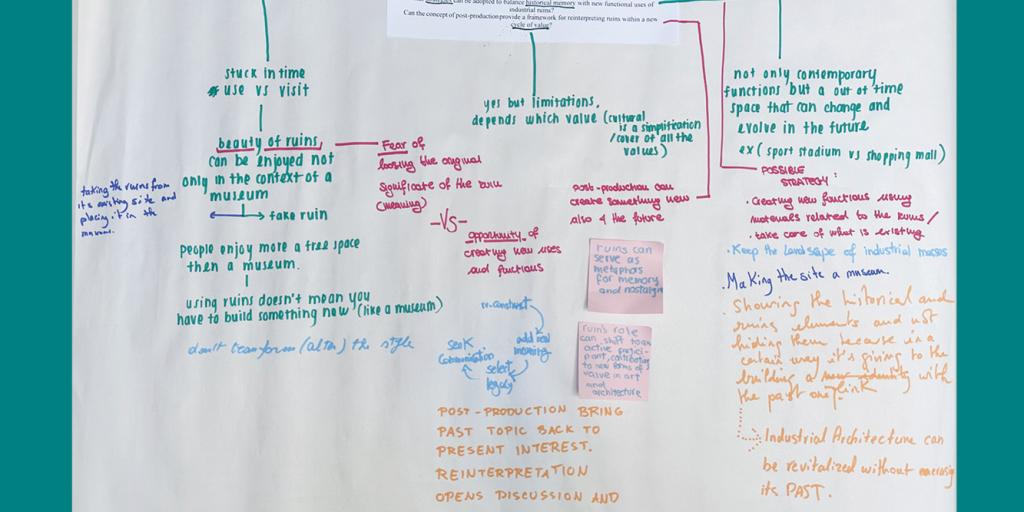 strategies can be adopted to balance historical memory with new functional uses of
industrial ruins?
Can the concept of post-production provide a framework for reinterpreting ruins within a new
cycle of value?
stuck in time
use vs visit
beauty of ruins,
can be enjoyed not
only in the context of a
museum
fake ruin
taking the ruins from
it's existing site and
placing it in the
museum.
people enjoy more a free space
then a museum.
using ruins doesn't mean you
have to build something new (like a museum)
don't transform (alter) the style
yes but limitations,
depends which value (cultural
is a simplification
/cover of all the
values)
Fear of
loosing the original
significate of the ruin
(meaning)
-VS-
opportunity of
creating new uses
and functions
post-production can
create something new
also 4 the future
ruins can
serve as
metaphors
for memory
and nostalgia
reconstruct
add new
meaning
select
legacy
seek
communication
ruin's role
can shift to an
active partici-
pant, contributing
to new forms of
value in art
and
architecture
POST-PRODUCTION BRING
PAST TOPIC BACK TO
PRESENT INTEREST.
REINTERPRETATION
OPENS DISCUSSION AND
not only contemporary
functions but a out of time
space that can change and
evolve in the future
ex (sport stadium vs shopping mall)
POSSIBLE
STRATEGY:
• creating new functions using
materials related to the ruins /
• take care of what is existing.
• Keep the landscape of industrial masses
• Making the site a museum.
• Showing the historical and
ruing elements and not
hiding them because in a
certain way it's giving to the
building a new identity with
the past one link
Industrial Architecture can
be revitalized without
its PAST.